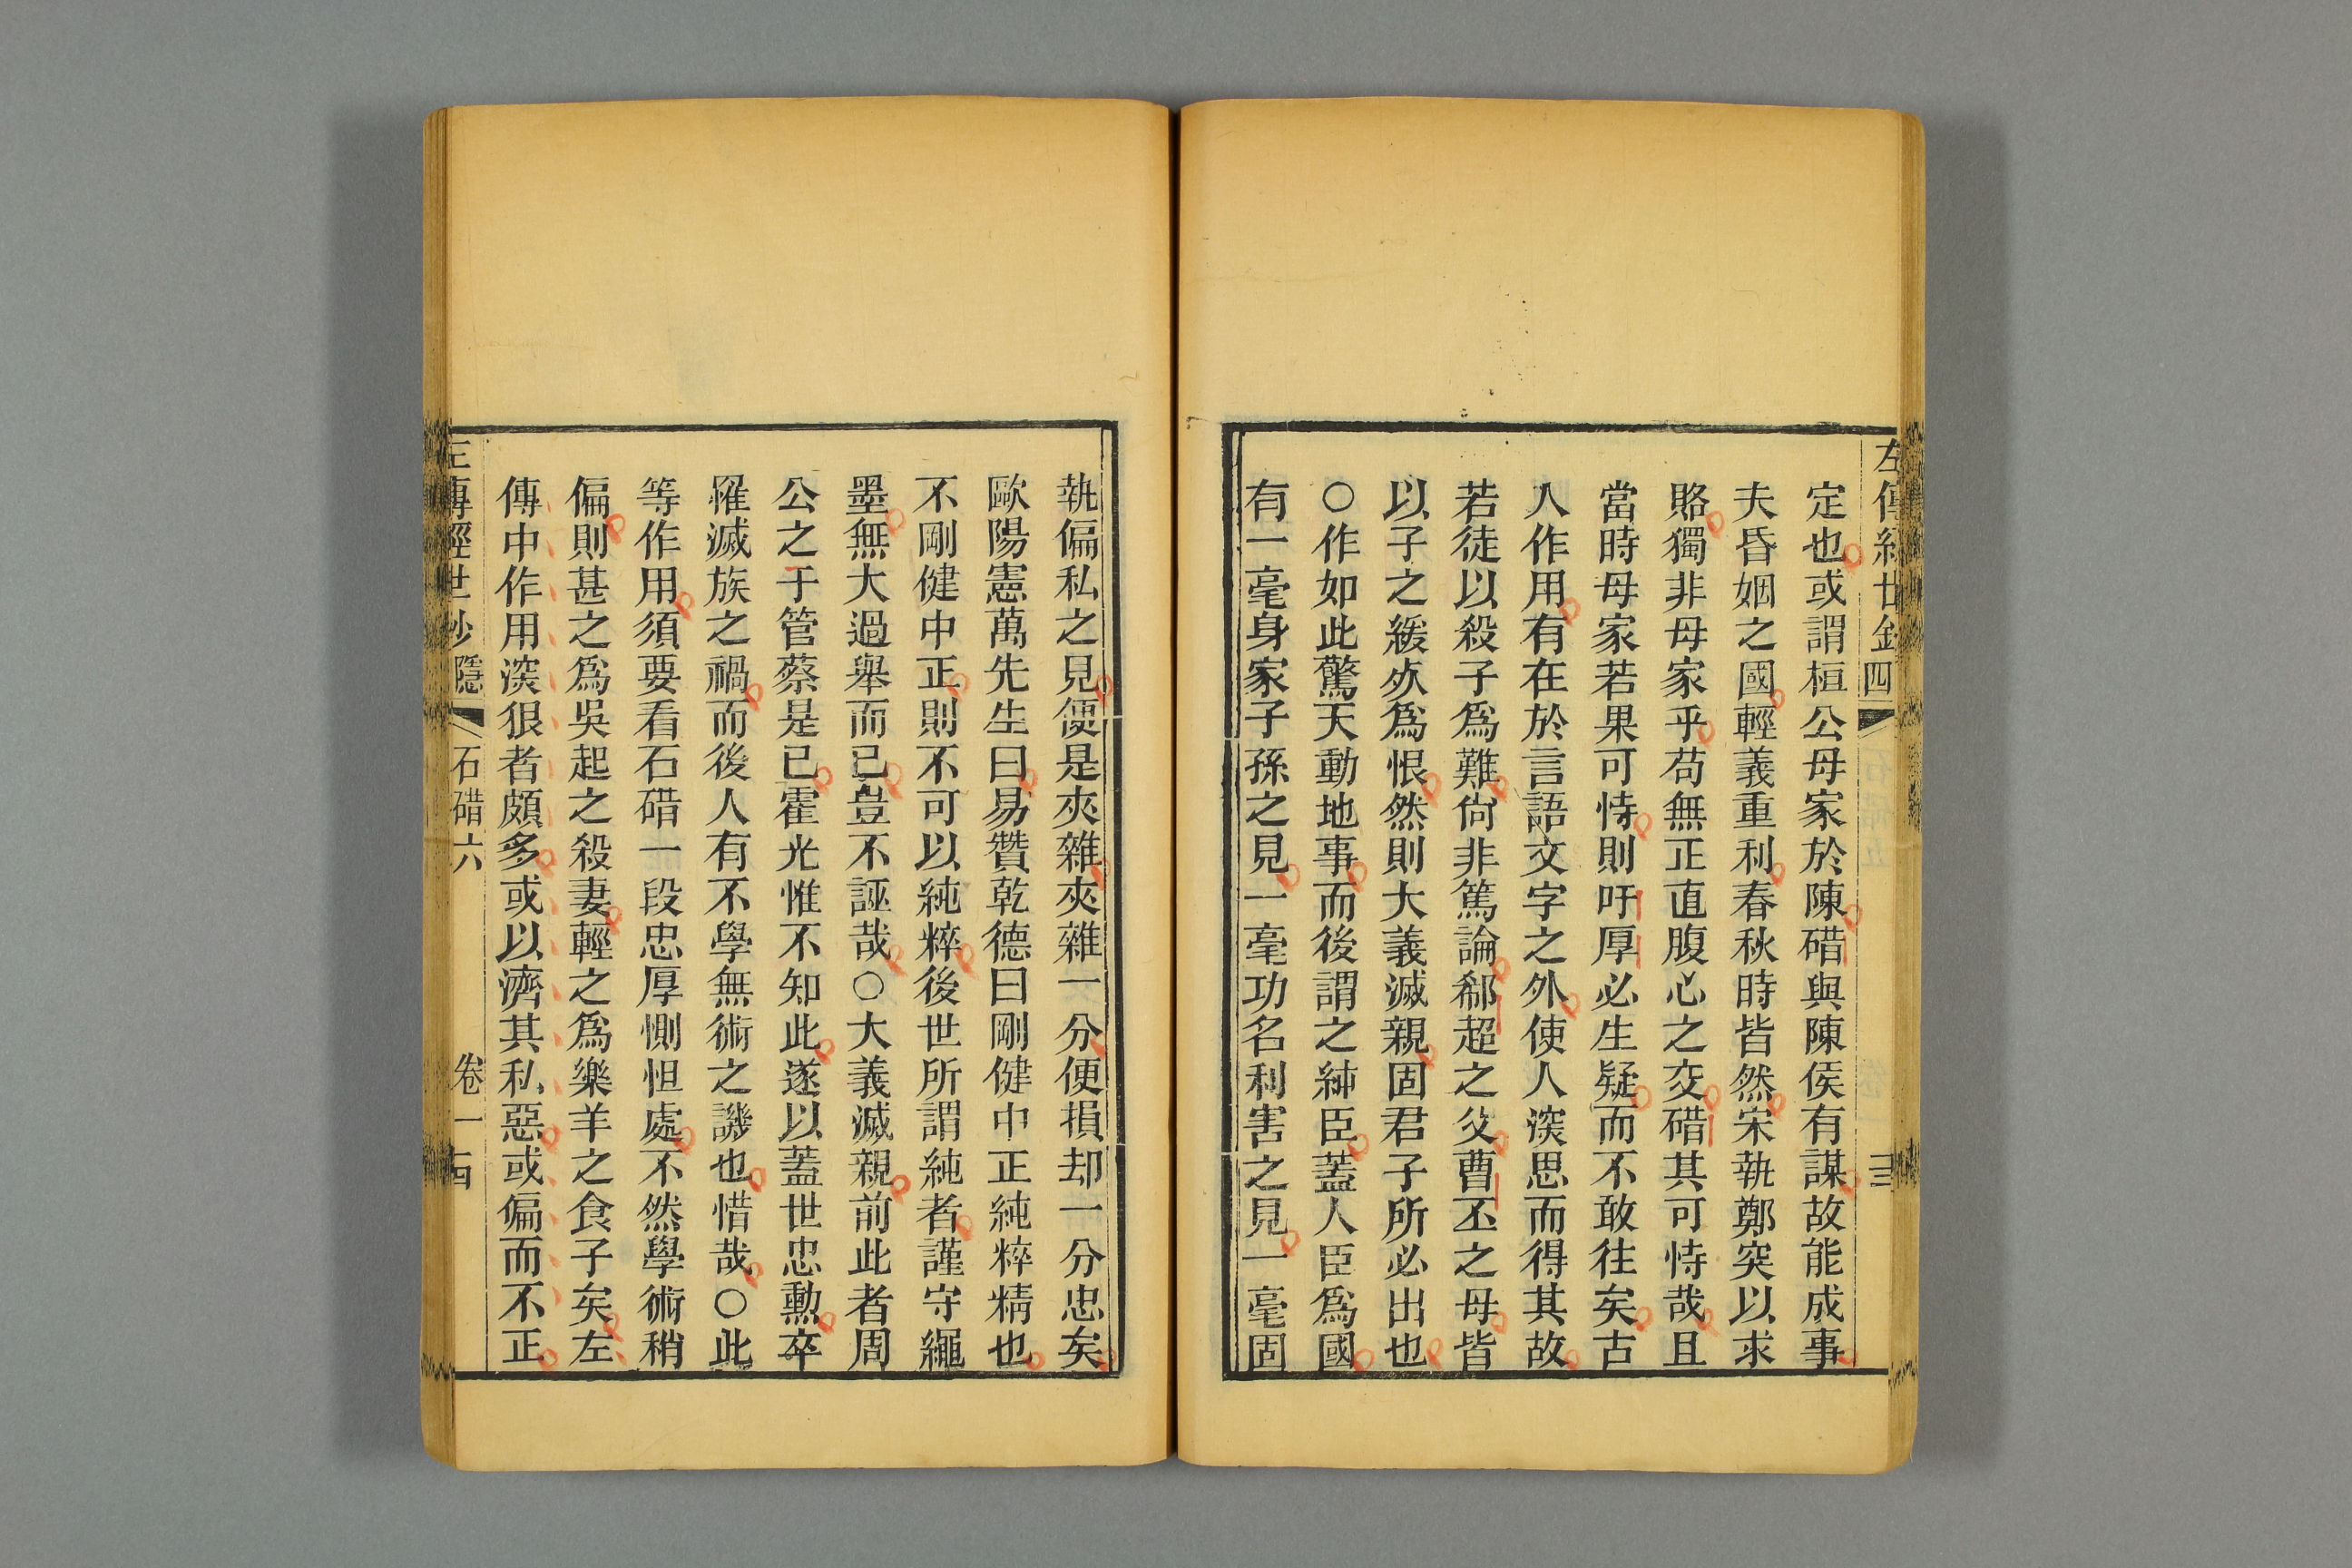 定也或謂桓公母家於陳碏與陳侯有謀故能成事
夫昏姻之國輕義重利春秋時皆然宋執鄭突以求
賂獨非母家乎苟無正直腹心之交碏其可恃哉且
當時母家若果可恃則吁厚必生疑而不敢往矣古
人作用有在於言語文字之外使人深思而得其故
若徒以殺子爲難尙非篤論郗超之父曹丕之母皆
以子之緩死爲恨然則大義滅親固君子所必出也
○作如此驚天動地事而後謂之純臣蓋人臣爲國
有一毫身家子孫之見一毫功名利害之見一毫固
執偏私之見便是夾雜夾雜一分便損却一分忠矣
歐陽憲萬先生曰易贊乾德曰剛健中正純粹精也
不剛健中正則不可以純粹後世所謂純者謹守繩
墨無大過舉而已豈不誣哉○大義滅親前此者周
公之于管蔡是已霍光惟不知此遂以蓋世忠勳卒
罹滅族之禍而後人有不學無術之譏也惜哉○此
等作用須要看石碏一段忠厚惻怛處不然學術稍
偏則甚之爲吳起之殺妻輕之爲樂羊之食子矣左
傳中作用深狠者頗多或以濟其私惡或偏而不正
傳經世鈔 隱 石碏六 卷一 古